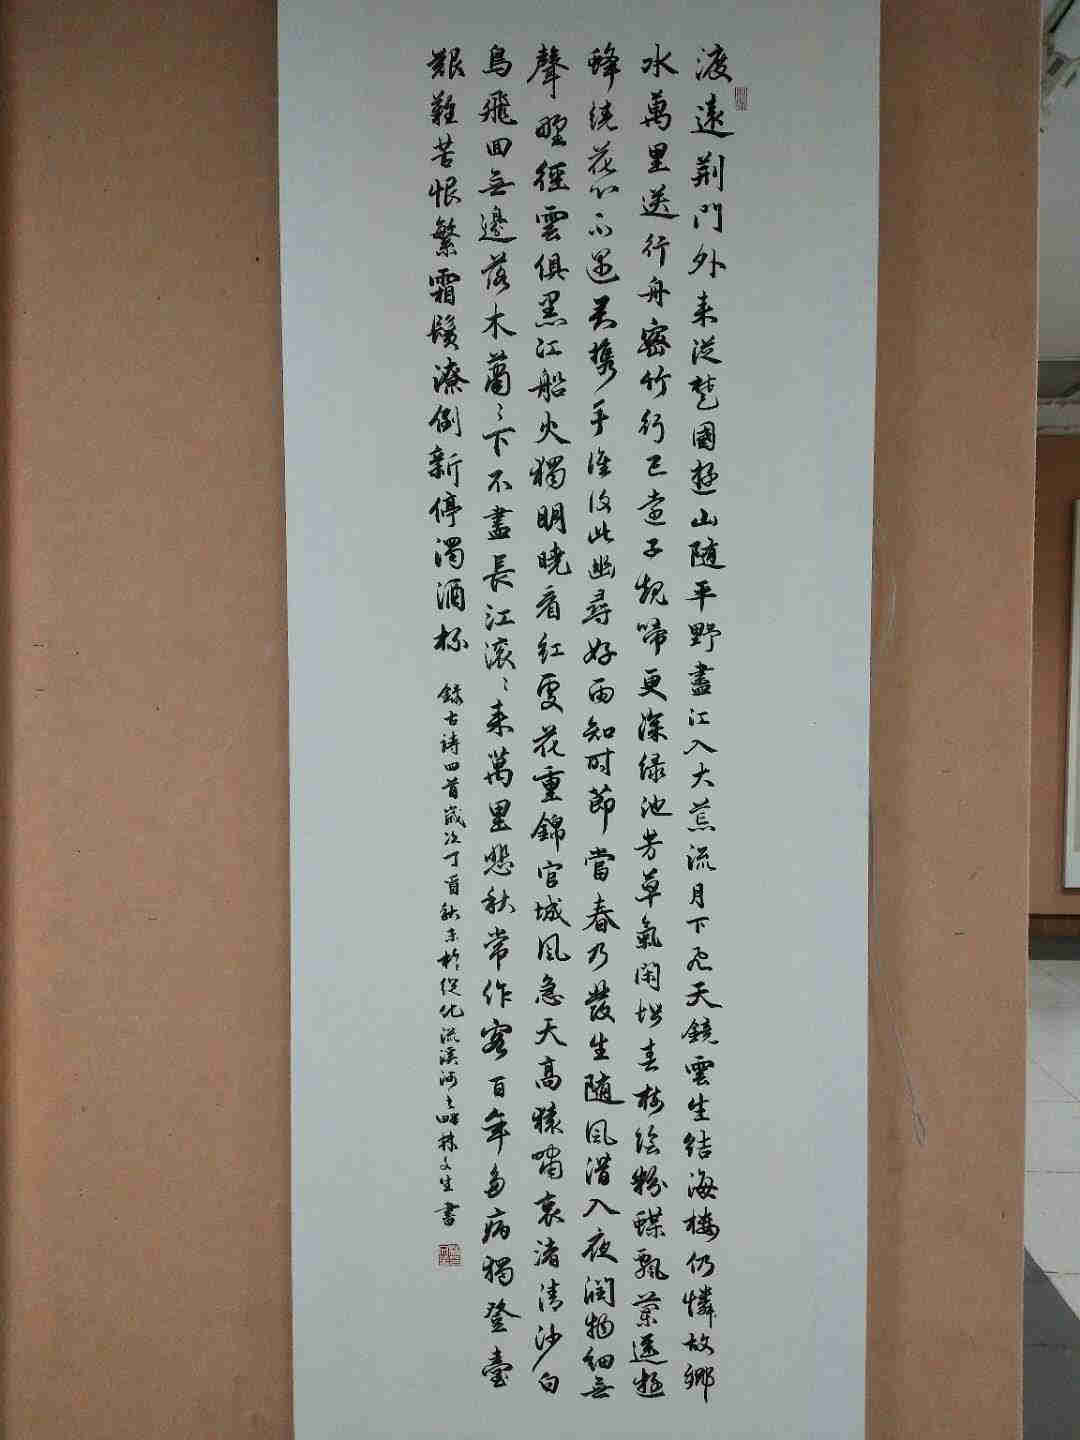 渡遠荊門外来從楚國遊山隨平野盡江入大荒流月下飛天鏡雲生結海樓仍憐故鄉
水萬里送行舟密竹行已遠子規啼更深绿池芳草氣閑春樹粉蝶飄蘭逕遊
蜂繞花心不遇君攜手誰復此幽尋好雨知时節當春乃發生隨風潛入夜潤物細無
聲野徑雲俱黑江船火獨明曉看紅花重錦官城風急天高猿嘯哀渚清沙白
鳥飛回無邊落木蕭〻下不盡長江滚〻来萬里悲秋常作客百年多病獨登臺
艱難苦恨繁霜鬢潦倒新停濁酒杯
錄古詩四首歲次丁酉秋末於從化流溪河之畔林文生書